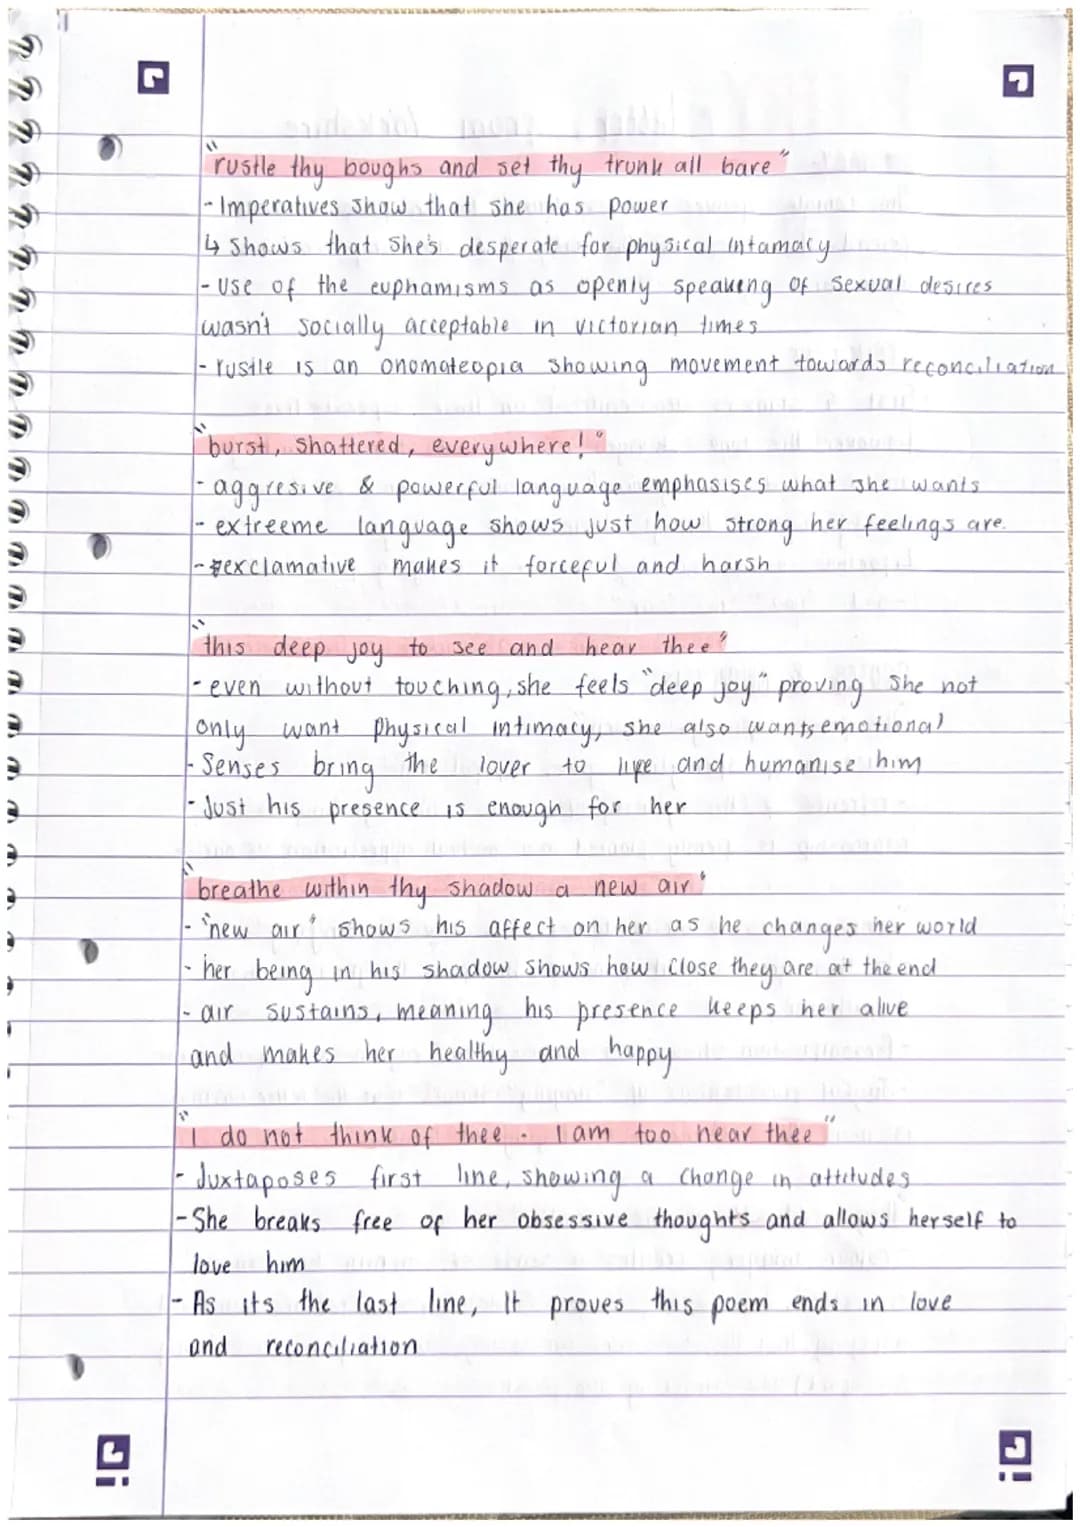 "rustle thy boughs and set thy trunk all bare"
- Imperatives show that she has power
↳ Shows that she's desperate for physical intamacy
- Use of the euphamisms as openly speaking of sexual desires
wasn't socially acceptable in victorian times
- rustle is an onomateopia showing movement towards reconciliation
"burst, shattered, everywhere!"
- aggresive & powerful language emphasises what she wants
- extreeme language shows just how strong her feelings are.
- exclamative makes it forceful and harsh
"this deep joy to see and hear thee"
- even without touching, she feels "deep joy" proving she not
only want physical intimacy, she also wants emotional
- Senses bring the lover to life and humanise him
- Just his presence is enough for her
"breathe within thy shadow a new air"
- "new air" shows his affect on her as he changes her world
- her being in his shadow shows how close they are at the end
- air sustains, meaning his presence keeps her alive
and makes her healthy and happy
"I do not think of thee - I am too near thee"
- Juxtaposes first line, showing a change in attitudes
- She breaks free of her obsessive thoughts and allows herself to
love him
- As its the last line, It proves this poem ends in love
and reconciliation